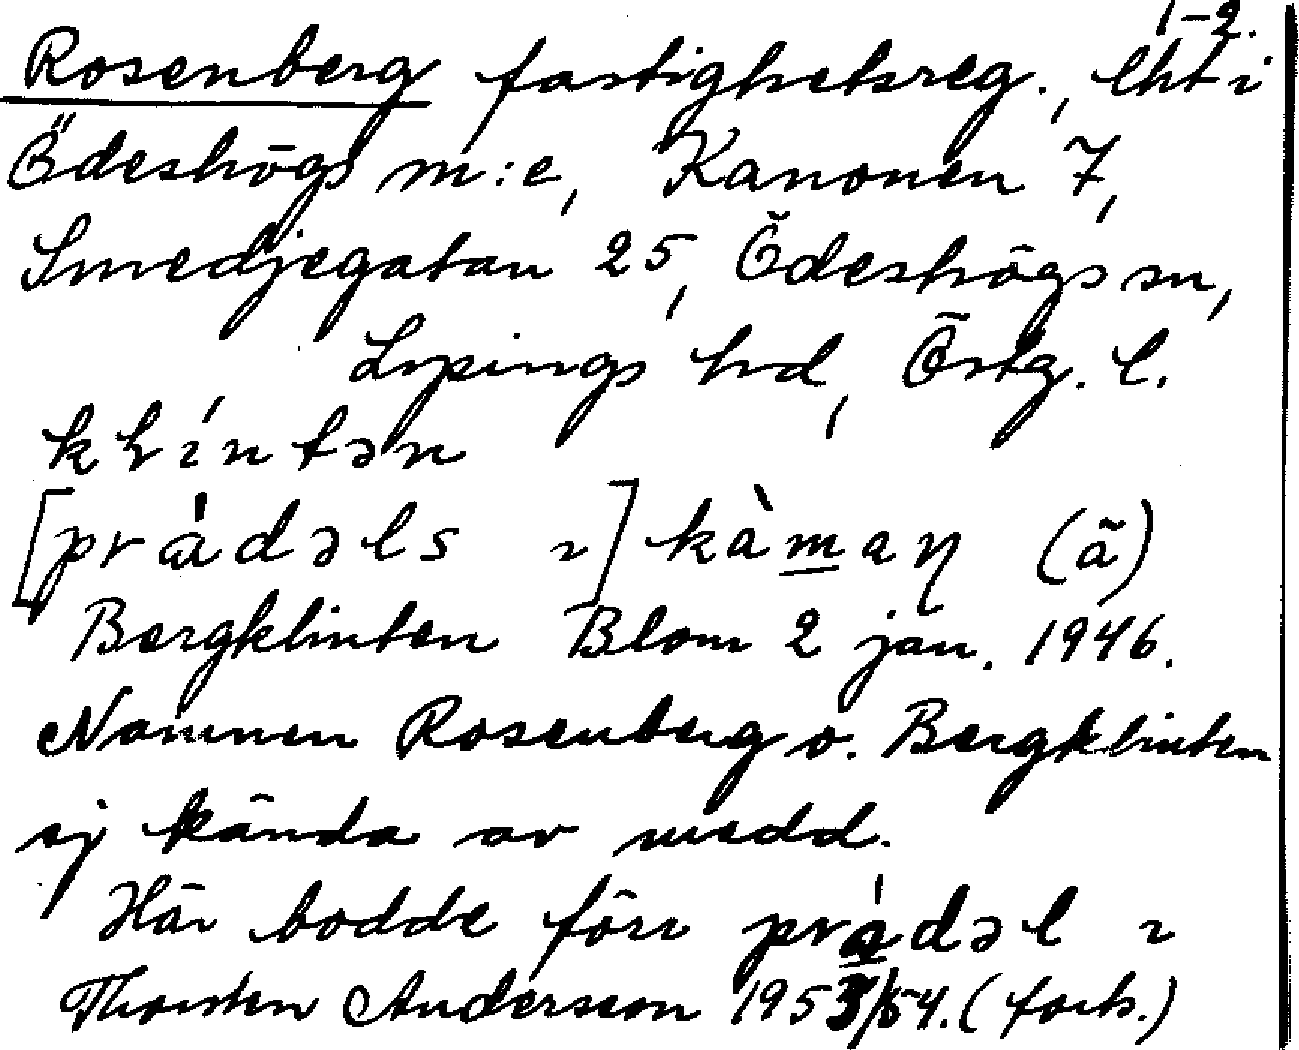 1-2.
Rosenberg fastighetsreg., lht i
Ödeshögs m:e, Kanonen 7,
Smedjegatan 25, Ödeshögs sn,
Lysings hd, Östg. l.
klíntən
[prádəls ~] kàmaɳ (ā)
Bergklinten Blom 2 jan. 1946.
Namnen Rosenberg o. Bergklinten
ej kända av medd.
Här bodde förr prádəl ~
Thorsten Andersson 1953/54. (forts.)